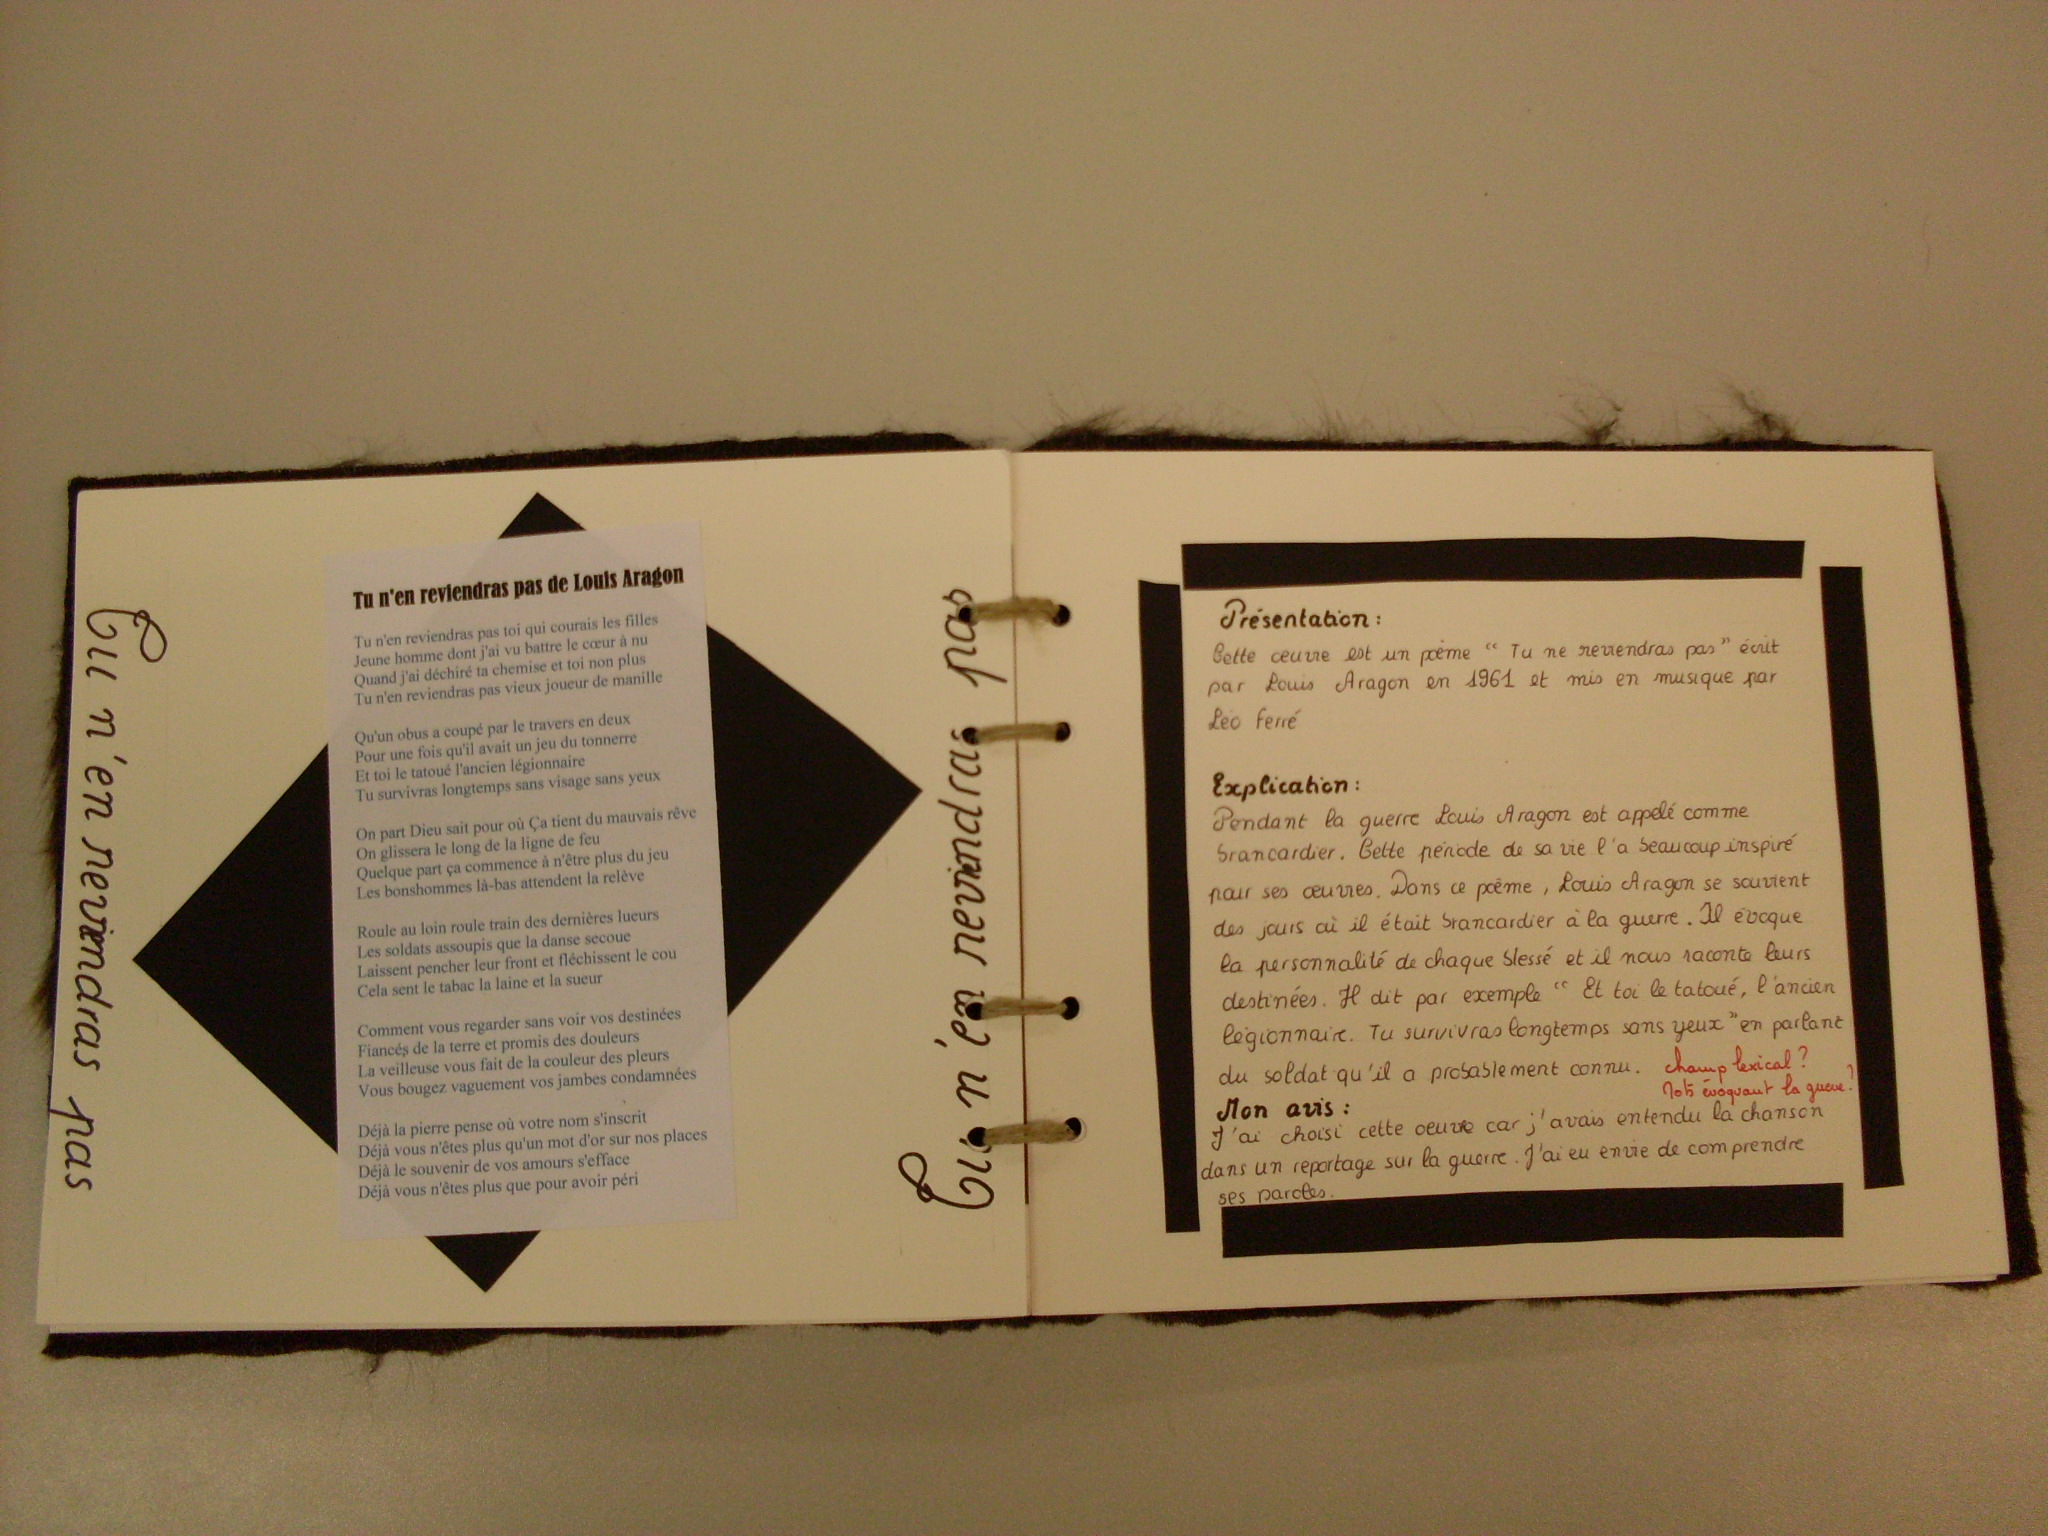 Tu n'en reviendras pas
Tu n'en reviendras pas de Louis Aragon
Tu n'en reviendras pas toi qui courais les filles
Jeune homme dont j'ai vu battre le cœur à nu
Quand j'ai déchiré ta chemise et toi non plus
Tu n'en reviendras pas vieux joueur de manille
Qu'un obus a coupé par le travers en deux
Pour une fois qu'il avait un jeu du tonnerre
Et toi le tatoué l'ancien légionnaire
Tu survivras longtemps sans visage sans yeux
On part Dieu sait pour où Ça tient du mauvais rêve
On glissera le long de la ligne de feu
Quelque part ça commence à n'être plus du jeu
Les bonshommes là-bas attendent la relève
Roule au loin roule train des dernières lueurs
Les soldats assoupis que la danse secoue
Laissent pencher leur front et fléchissent le cou
Cela sent le tabac la laine et la sueur
Comment vous regarder sans voir vos destinées
Fiancés de la terre et promis des douleurs
La veilleuse vous fait de la couleur des pleurs
Vous bougez vaguement vos jambes condamnées
Déjà la pierre pense où votre nom s'inscrit
Déjà vous n'êtes plus qu'un mot d'or sur nos places
Déjà le souvenir de vos amours s'efface
Déjà vous n'êtes plus que pour avoir péri
Tu n'en reviendras pas
Présentation :
Cette œuvre est un poème “ Tu ne reviendras pas ” écrit
par Louis Aragon en 1961 et mis en musique par
Léo Ferré
Explication :
Pendant la guerre Louis Aragon est appelé comme
brancardier. Cette période de sa vie l'a beaucoup inspiré
pour ses œuvres. Dans ce poème, Louis Aragon se souvient
des jours où il était brancardier à la guerre. Il évoque
la personnalité de chaque blessé et il nous raconte leurs
destinées. Il dit par exemple “ Et toi le tatoué, l'ancien
légionnaire. Tu survivras longtemps sans yeux ” en parlant
du soldat qu'il a probablement connu. champ lexical ?
Mots évoquant la guerre ?
Mon avis :
J'ai choisi cette oeuvre car j'avais entendu la chanson
dans un reportage sur la guerre. J'ai eu envie de comprendre
ses paroles.